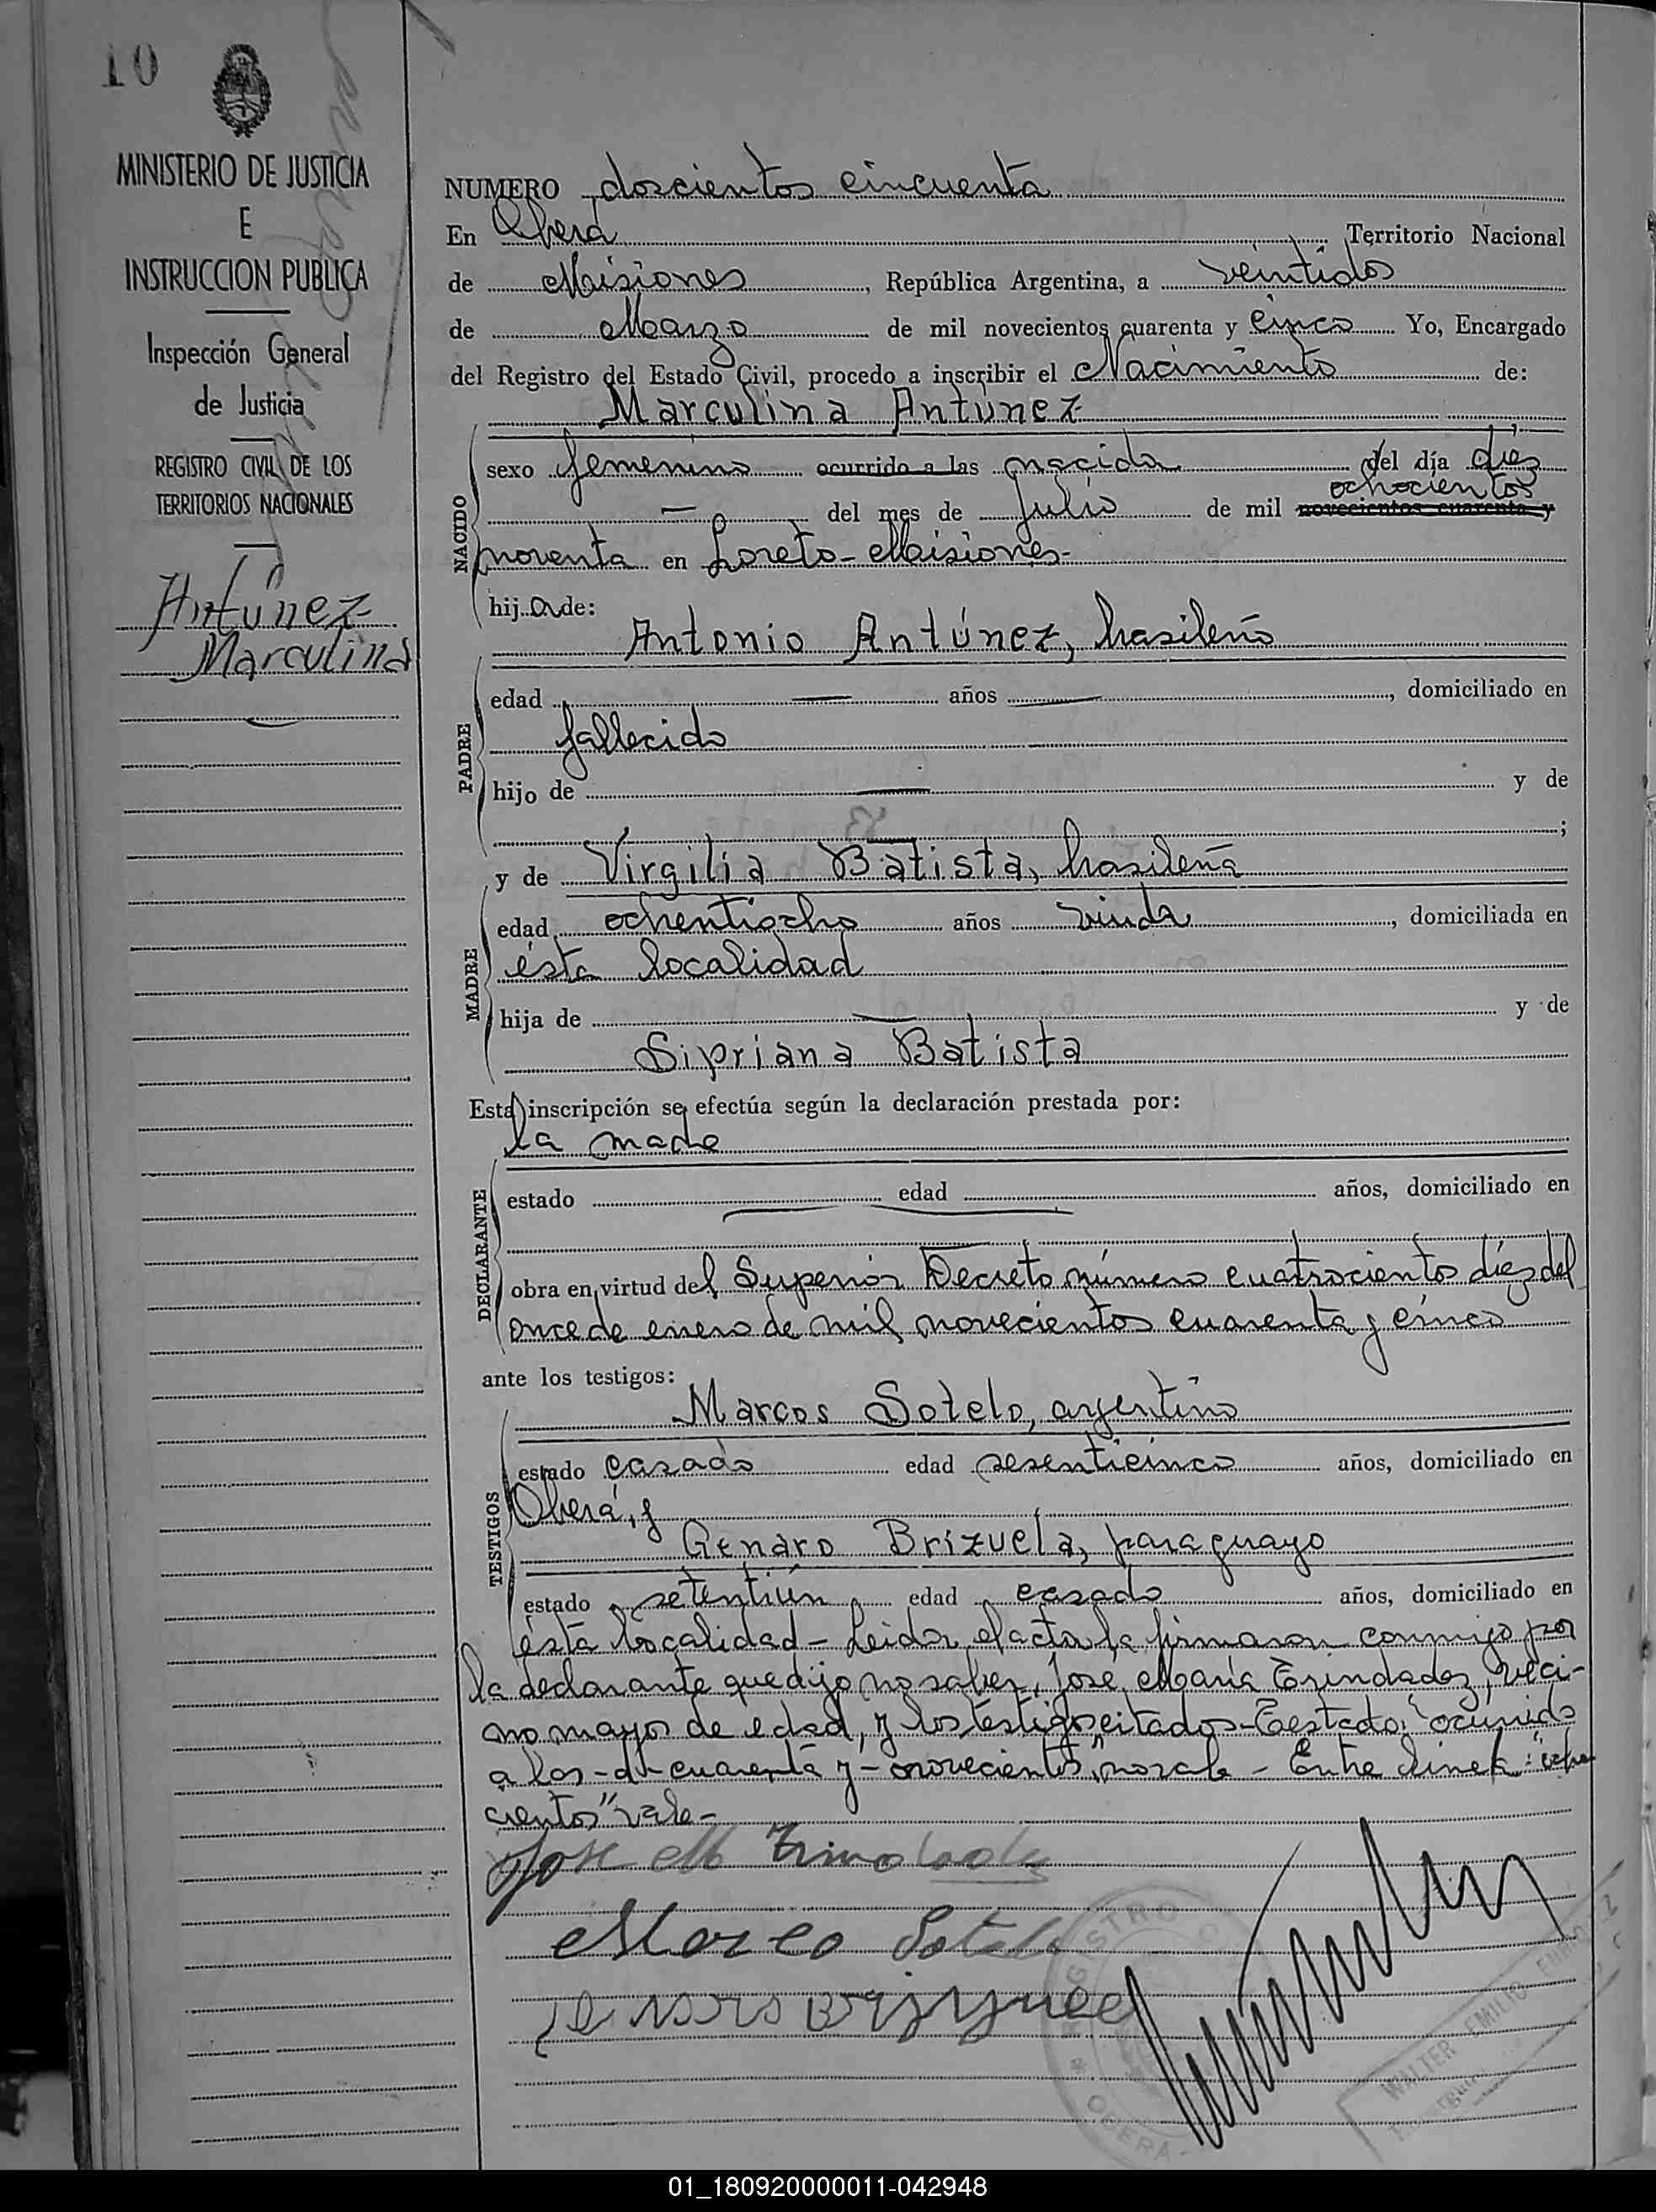 10
MINISTERIO DE JUSTICIA
E
INSTRUCCION PUBLICA
Inspección General
de Justicia
REGISTRO CIVIL DE LOS
TERRITORIOS NACIONALES
Antúnez
Marculina
NUMERO doscientos cincuenta
En Oberá Territorio Nacional
de Misiones, República Argentina, a veintidos
de Marzo de mil novecientos cuarenta y cinco Yo, Encargado
del Registro del Estado Civil, procedo a inscribir el Nacimiento de:
Marculina Antúnez
sexo femenino ocurrido a las nacida del día diez
ochocientos
— del mes de Julio de mil novecientos cuarenta y
NACIDO
noventa en Loreto - Misiones-
hija de:
Antonio Antúnez, brasileño
edad — años —, domiciliado en
PADRE
fallecido
hijo de — y de
;
y de Virgilia Batista, brasileña
edad ochentiocho años viuda, domiciliada en
MADRE
ésta localidad
hija de — y de
Sipriana Batista
Esta inscripción se efectúa según la declaración prestada por:
la madre
estado edad años, domiciliado en
DECLARANTE
obra en virtud del Superior Decreto número cuatrociento diez del
once de enero de mil novecientos cuarenta y cinco
ante los testigos:
Marcos Sotelo, argentino
estado casado edad sesenticinco años, domiciliado en
TESTIGOS
Oberá, y
Genaro Brizuela, paraguayo
estado setentiún edad casado años, domiciliado en
ésta localidad - Leida el acta la firmaron conmigo por
la declarante que dijo no saber, José María Trindadez, veci-
no mayor de edad, y los testigos citados - Testado: "ocurrido
a las - d - cuarenta y - novecientos" no vale - Entre linea: "ocho
cientos" vale -
Jose M Trindade
Marco Sotelo
REGISTRO
OBERA
WALTER EMILIO
01_180920000011-042948